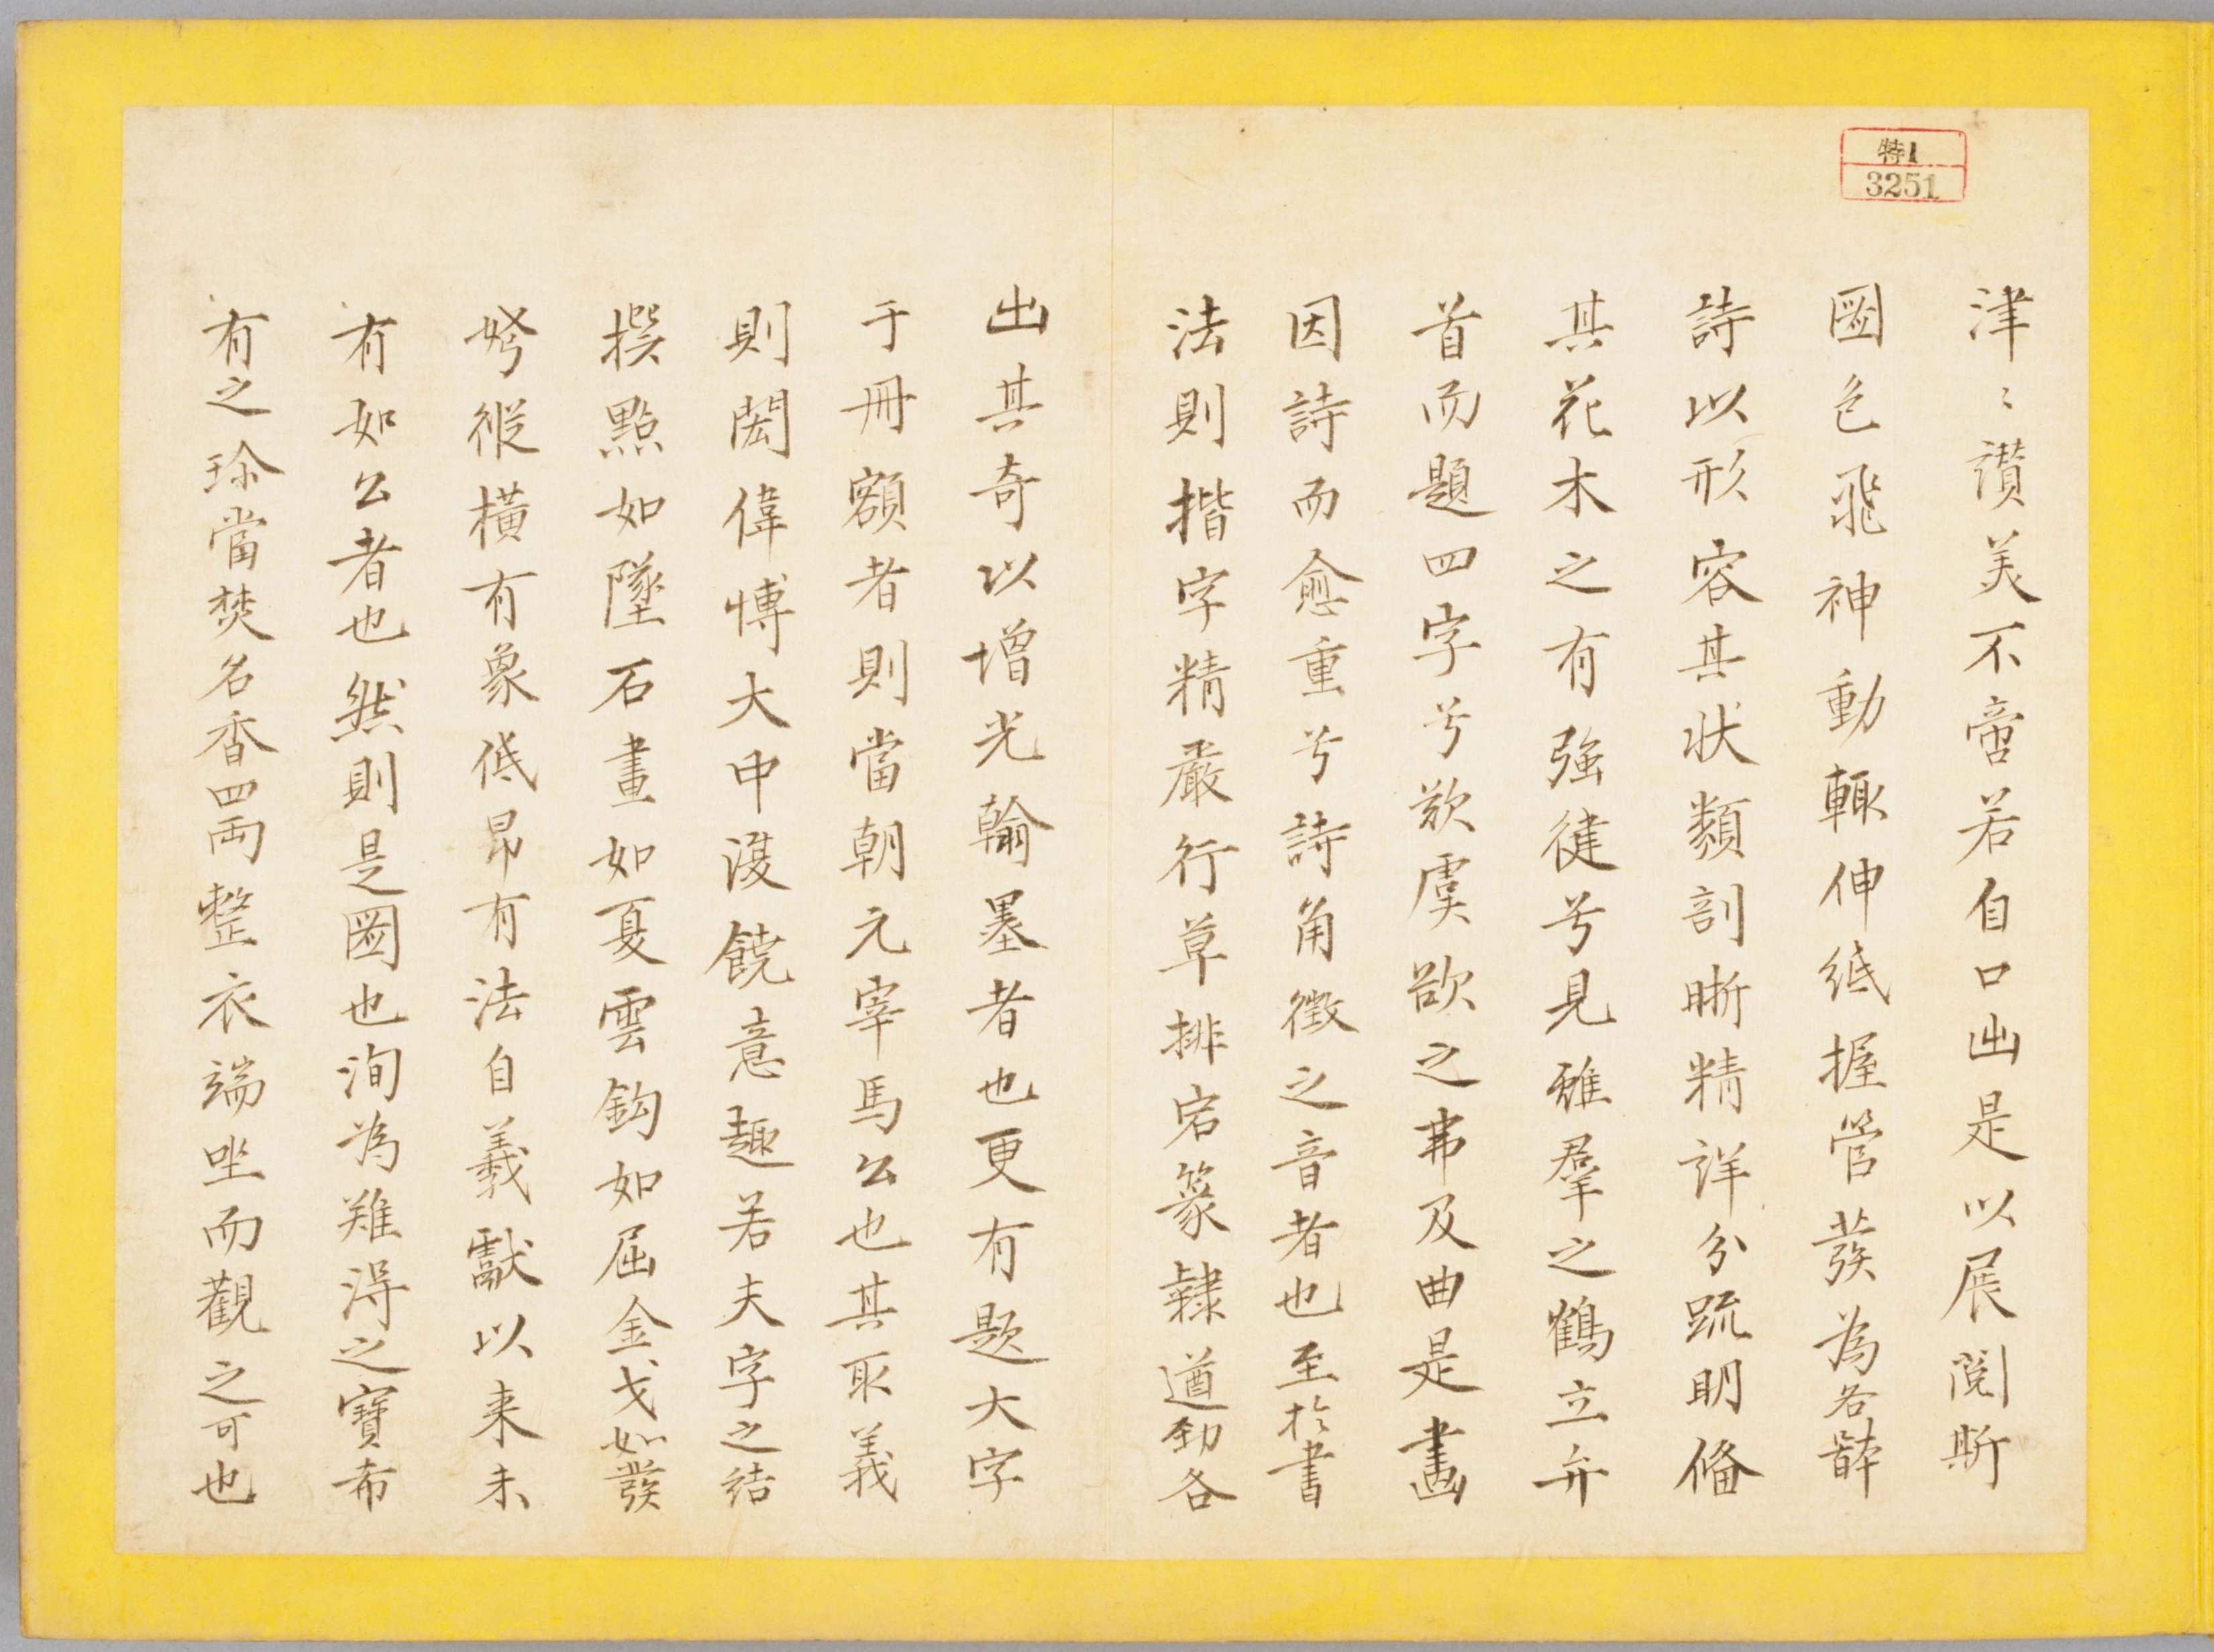 特1
3251
津〻讃美不啻若自口出是以展閲斯
圖色飛神動輒伸紙握管發為各體
詩以形容其状類剖晣精詳分疏明備
其花木之有強健兮見雞羣之鶴立弁
首而題四字兮歎虞欲之弗及曲是畫
因詩而愈重兮詩角徴之音者也至於書
法則揩字精嚴行草排宕篆隷遒勁各
出其奇以增光翰墨者也更有題大字
于冊額者則當朝元宰馬公也其取義
則閎偉博大中復饒意趣若夫字之結
撰點如墜石畫如夏雲鈎如屈金戈如發
弩縱橫有象低昂有法自羲獻以来未
有如公者也然則是圖也洵為難得之寶希
有之珍當焚名香四両整衣端坐而觀之可也